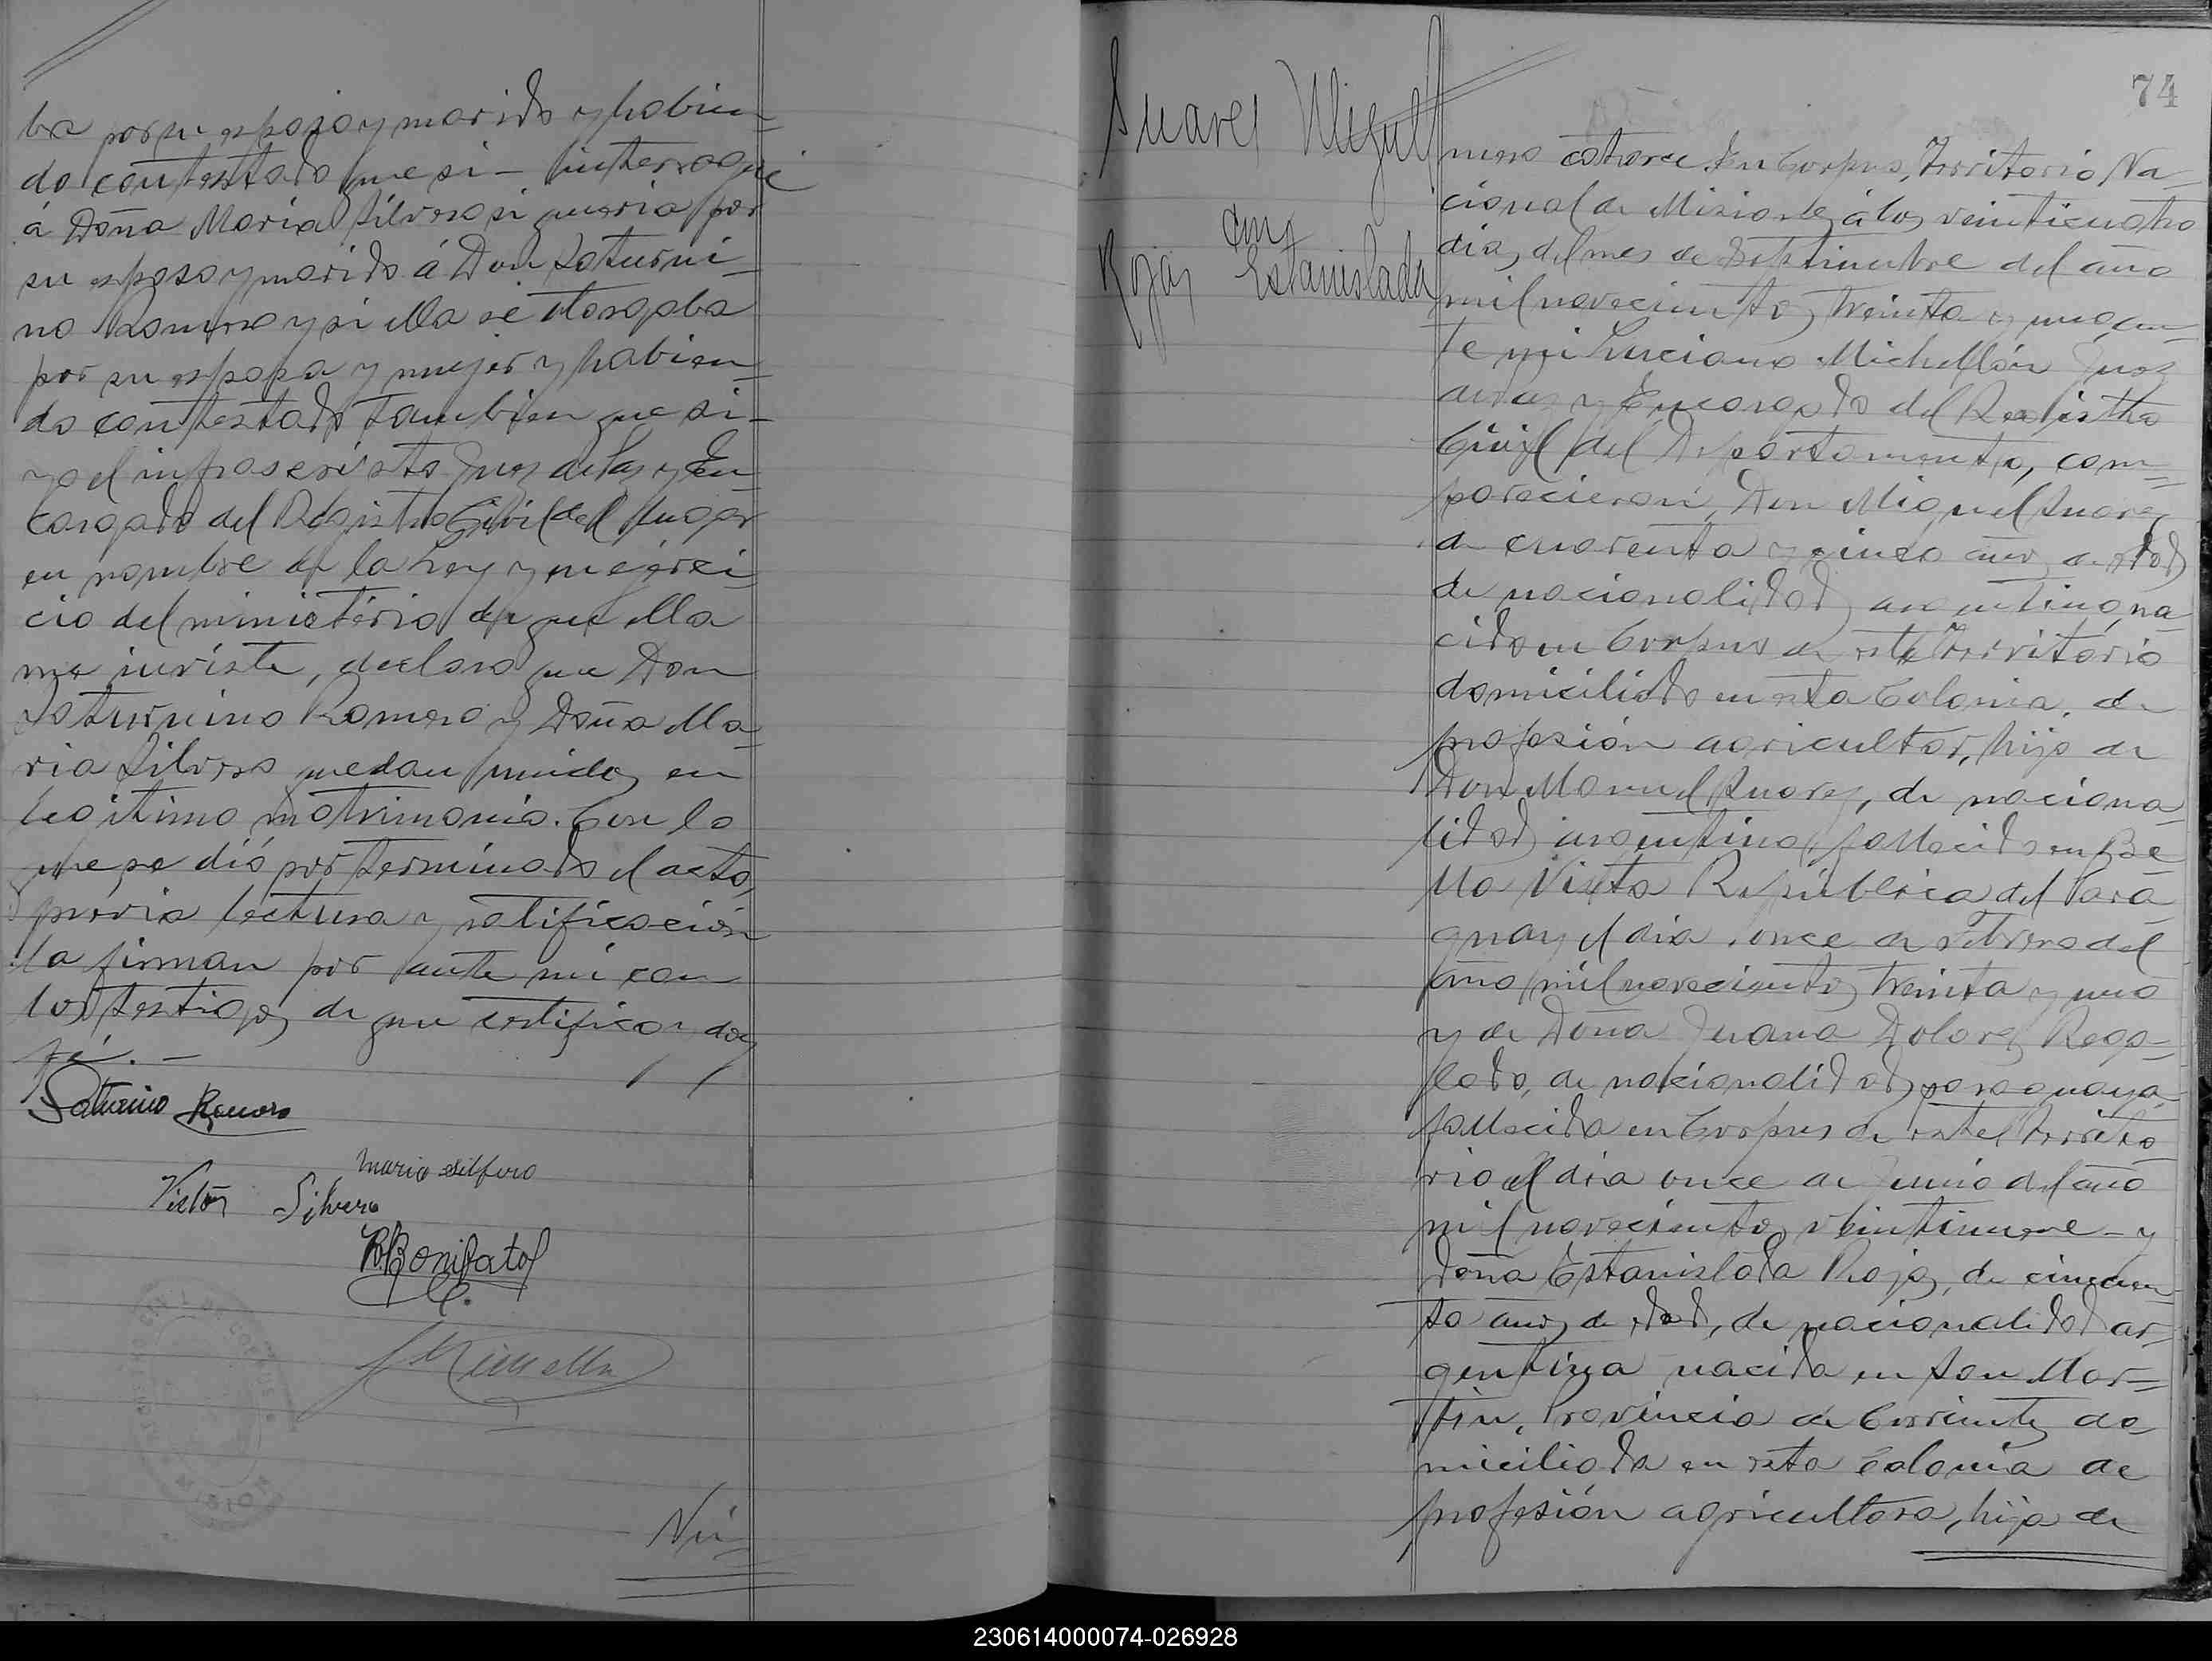 ba por su esposo y marido y habien-
do contestado que si - interrogué
á Doña Maria Silvero si queria por
su esposo y marido á Don Saturni-
no Romero y si ella se otorgaba
por su esposa y mujer y habien-
do contestado tambien que si-
yo el infrascripto Juez de Paz y En-
cargado del Registro Civil del lugar
en nombre de la Ley y en ejerci-
cio del ministerio de que ella
me inviste, declaro que Don
Saturnino Romero y Doña Ma-
ria Silvero quedan unidos en
legitimo matrimonio. Con lo
que se dió por terminado el acto,
prévia lectura y ratificación
la firman por ante mi con
los testigos de que certifico y doy
fé. -
Saturnino Romero
Maria Silfero
Victor Silvero
Bonifato
Nú-
74
Suarez Miguel
con
Rojas Estanislada
mero catorce En Corpus, Territorio Na-
cional de Misiones, á los veinticuatro
dias del mes de Septiembre del año
mil novecientos treinta y uno, an-
te mi Luciano Juez
de Paz y Encargado del Registro
Civil del Departamento, com-
parecieron, Don Miguel Suarez
de cuarenta y cinco años de edad
de nacionalidad argentino, na-
cido en Corpus de este Territorio
domiciliado en esta Colonia, de
profesión agricultor, hijo de
Don Manuel Suarez, de naciona-
lidad argentino, fallecido en Be-
lla Vista República del Para-
guay el dia once de Febrero del
año mil novecientos treinta y uno
y de Doña Juana Dolores Rega-
lado, de nacionalidad paraguaya,
fallecida en Corpus de este Territo-
rio el dia once de Junio del año
mil novecientos veintinueve - y
Doña Estanislada Rojas, de cincuen-
ta años de edad, de nacionalidad ar-
gentina nacida en San Mar-
tin, Provincia de Corrientes do-
miciliada en esta Colonia de
profesión agricultora, hija de
230614000074-026928